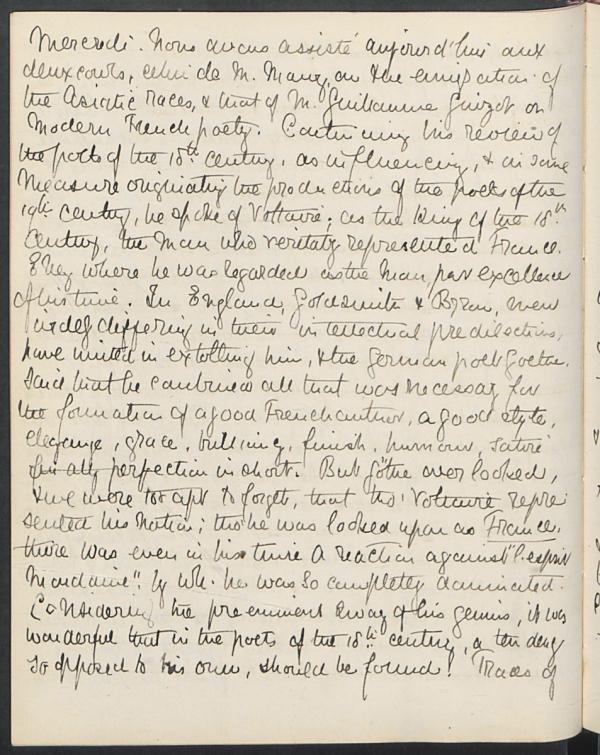 Mercredi. Nous avons assisté aujourd'hui aux
deux cours, celui de M. Maury, on the emigration of
the Asiatic races, & that of M. Guillaume Guizot on
Modern French poetry. Continuing his review of
the poets of the 18th century, as influencing, & in some
measure originating the productions of the poets of the
19th century, he spoke of Voltaire; as the King of the 18th
Century, the man who veritably represented France.
Every where he was regarded as the man, par excellence
of his time. In England, Goldsmith & Byron, men
widely differing in their intellectual predilections,
have united in extolling him, & the German poet Goethe.
said that he combined all that was necessary for
the formation of a good French author, a good style,
elegance, grace, brilliancy, finish, humour, satire
finally perfection in short. But Göthe overlooked,
& we were too apt to forget, that tho' Voltaire repre
sented his nation; tho' he was looked upon as France.
there was even in his time a reaction against "l'esprit
Mondaine" by wh. he was so completely dominated.
Considering the preeminent sway of his genius, it was
wonderful that in the poets of the 18th century, a tendency
so opposed to his own, should be found! Traces of